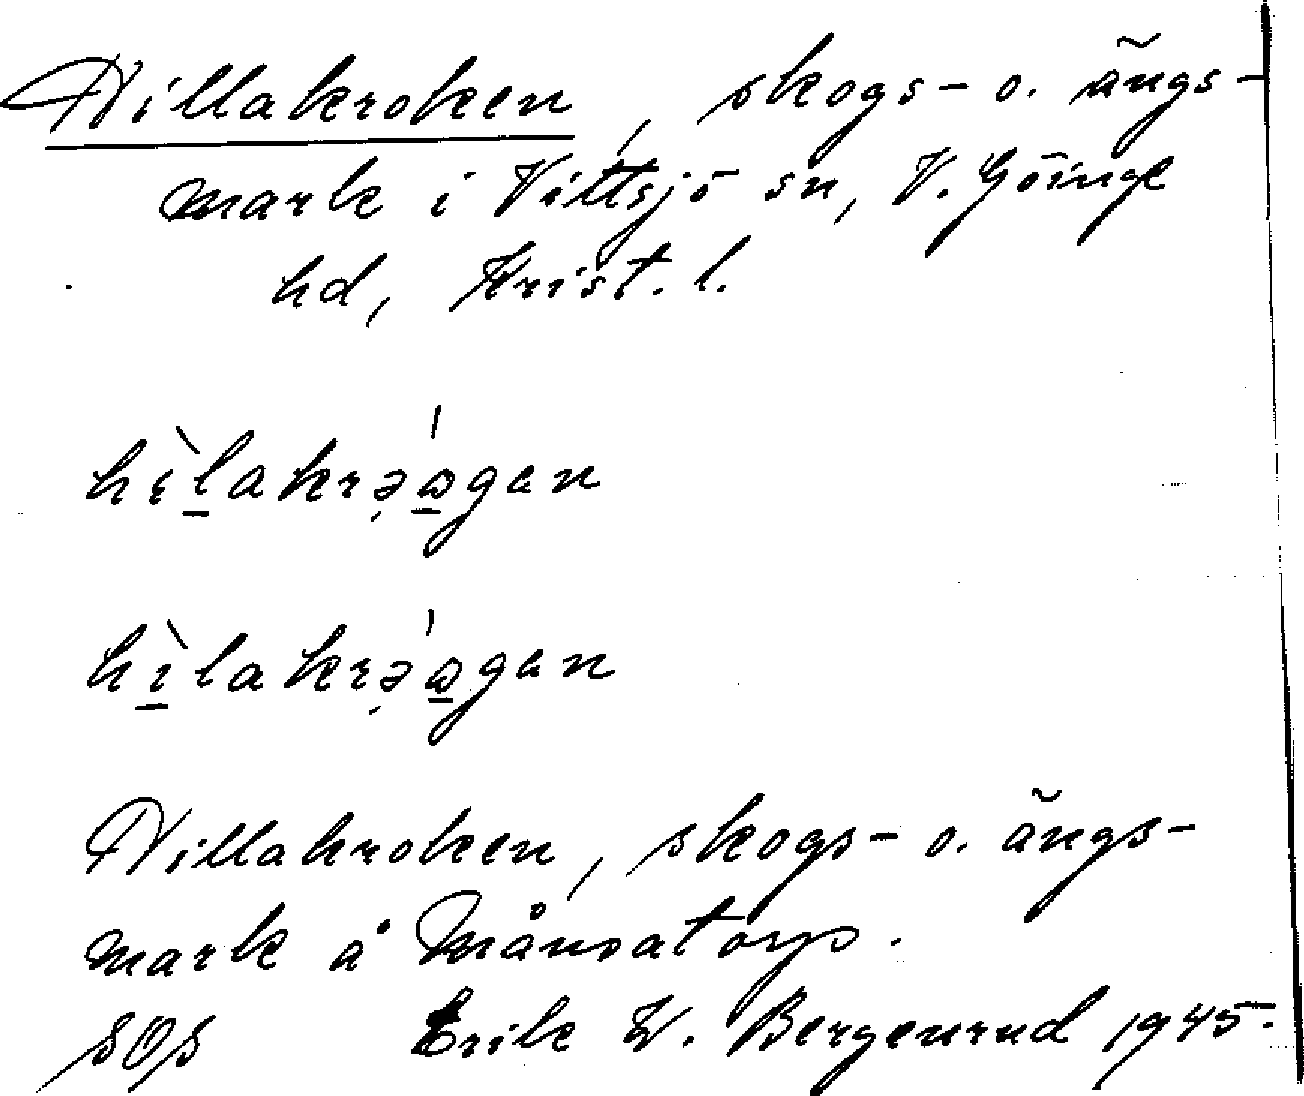 Hillakroken, skogs- o. ängs-
mark i Vittsjö sn, V. Göinge
hd, Krist. l.
hìlakrə̣ágan
hìlakrə̣ágan
Hillakroken, skogs- o. ängs-
mark å Månsatorp.
SOS Erik W. Bergenrud 1945.